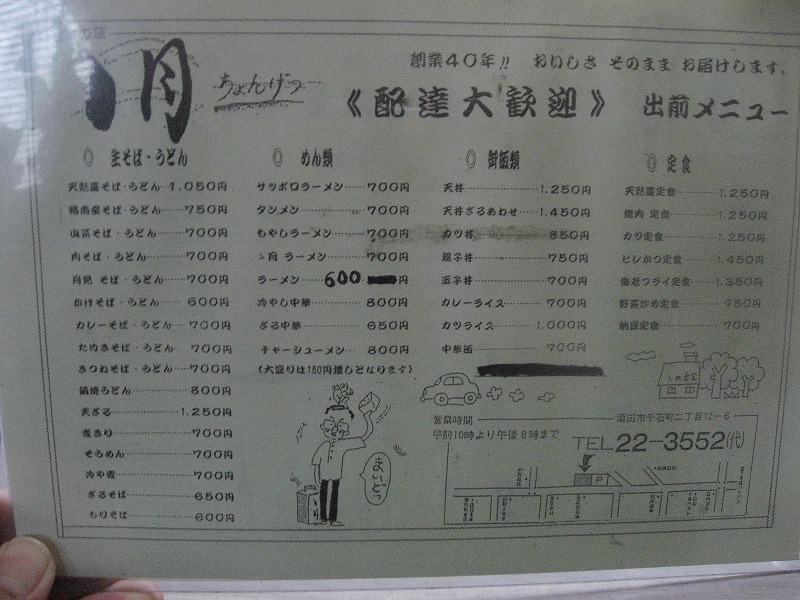 月
ちょんげつ
創業40年!! おいしさ そのまま お届けします。
《配達大歓迎》 出前メニュー
◎ 生そば・うどん
天麩羅そば・うどん 1,050円
鴨南蛮そば・うどん 750円
山菜そば・うどん 700円
肉そば・うどん 700円
月見 そば・うどん 700円
かけそば・うどん 600円
カレーそば・うどん 700円
たぬきそば・うどん 700円
きつねそば・うどん 700円
鍋焼うどん 800円
天ざる 1,250円
700円
そうめん 700円
冷や麦 700円
ざるそば 650円
もりそば 600円
◎ めん類
サッポロラーメン 700円
タンメン 700円
もやしラーメン 700円
ゝ月 ラーメン 700円
ラーメン 600円
冷やし中華 800円
ざる中華 650円
チャーシューメン 800円
(大盛りは150円増しとなります)
◎ 御飯類
天丼 1,250円
天丼ざるあわせ 1,450円
カツ丼 850円
親子丼 750円
玉子丼 700円
カレーライス 700円
カツライス 1,000円
中華飯 700円
◎ 定食
天麩羅定食 1,250円
焼肉 定食 1,250円
カツ定食 1,250円
ヒレかつ定食 1,450円
海老フライ定食 1,350円
野菜炒め定食 950円
納豆定食 700円
営業時間
午前10時より午後8時まで
酒田市千石町二丁目12-6
TEL22-3552(代)
P